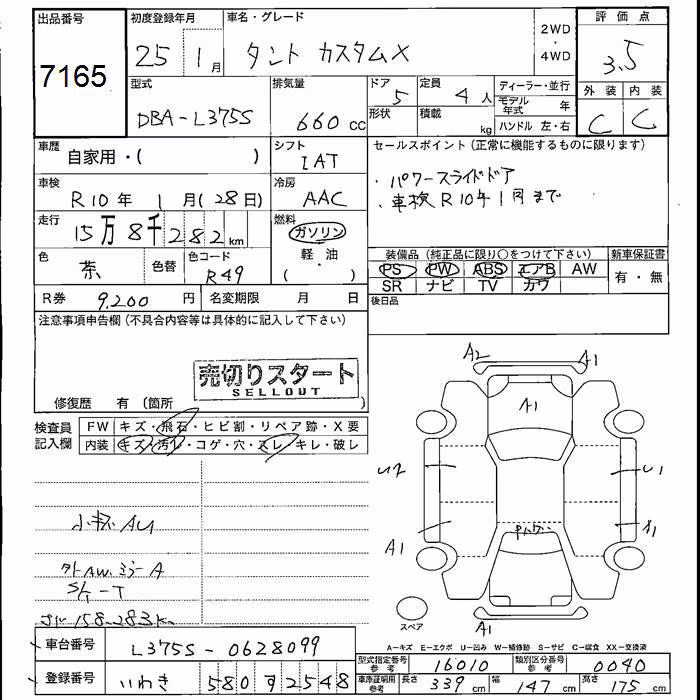 出品番号 初度登録年月 車名・グレード 2WD・4WD 評価点
7165 25 1月 タント カスタムX 3.5
型式 排気量 ドア 定員 ディーラー・並行 外装 内装
DBA-L375S 660cc 5 4人 モデル年式 年 C C
形状 積載 kg ハンドル 左・右
車歴 自家用・( ) シフト IAT セールスポイント(正常に機能するものに限ります)
車検 R10年 1月(28日) 冷房 AAC ・パワースライドドア
・車検R10年1月まで
走行 15万8千282km 燃料 ガソリン
軽・油
( )
色 茶 色替 色コード R49
装備品(純正品に限り○をつけて下さい) 新車保証書
PS PW ABS エアB AW 有・無
SR ナビ TV カワ
R券 9,200円 名変期限 月 日 後日品
注意事項申告欄(不具合内容等は具体的に記入して下さい)
売切りスタート
SELLOUT
修復歴 有(箇所 )
検査員記入欄 FW キズ・飛石・ヒビ割・リペア跡・X要
内装 キズ・汚レ・コゲ・穴・スレ・キレ・破レ
A2 A1
A1
U2 U1
A1
A1
スペア
小キズ AU
外AW.ミラーA
158-283K
A=キズ E=エクボ U=凹み W=補修跡 S=サビ C=腐食 XX=交換済
車台番号 L375S-0628099
型式指定番号参考 16010 類別区分番号参考 0040
登録番号 いわき 580 す 2548
車庫証明用参考 長さ 339cm 幅 147cm 高さ 175cm